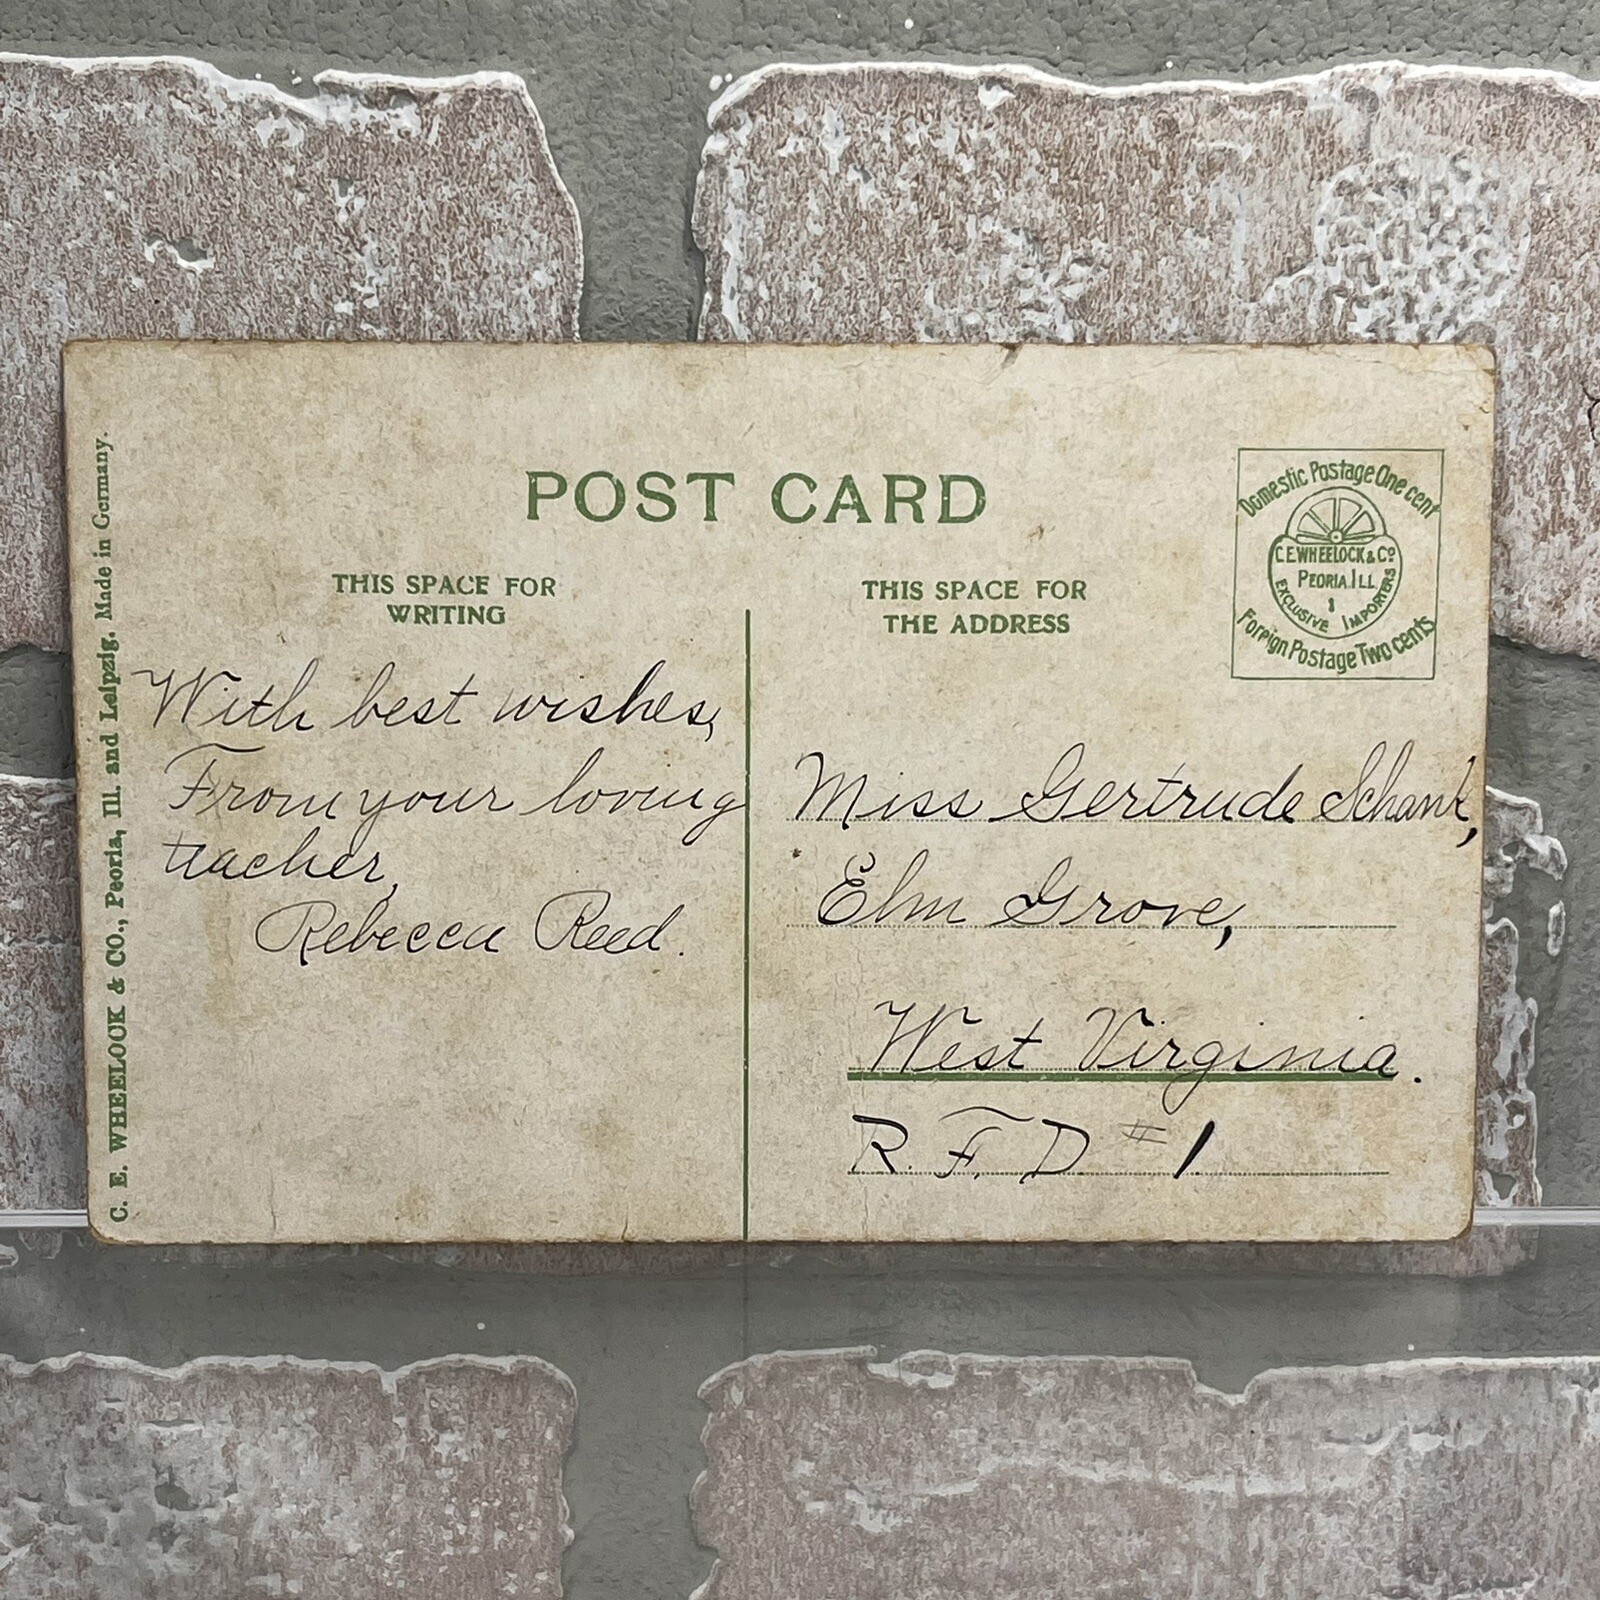 POST CARD
THIS SPACE FOR
WRITING
THIS SPACE FOR
THE ADDRESS
Domestic Postage One cent
C.E. WHEELOCK & Co
PEORIA. ILL
EXCLUSIVE IMPORTERS
Foreign Postage Two cents
C. E. WHEELOCK & CO., Peoria, Ill. and Leipzig. Made in Germany.
With best wishes,
From your loving
teacher,
Rebecca Reed.
Miss Gertrude Schank,
Elm Grove,
West Virginia.
R. F. D #1.